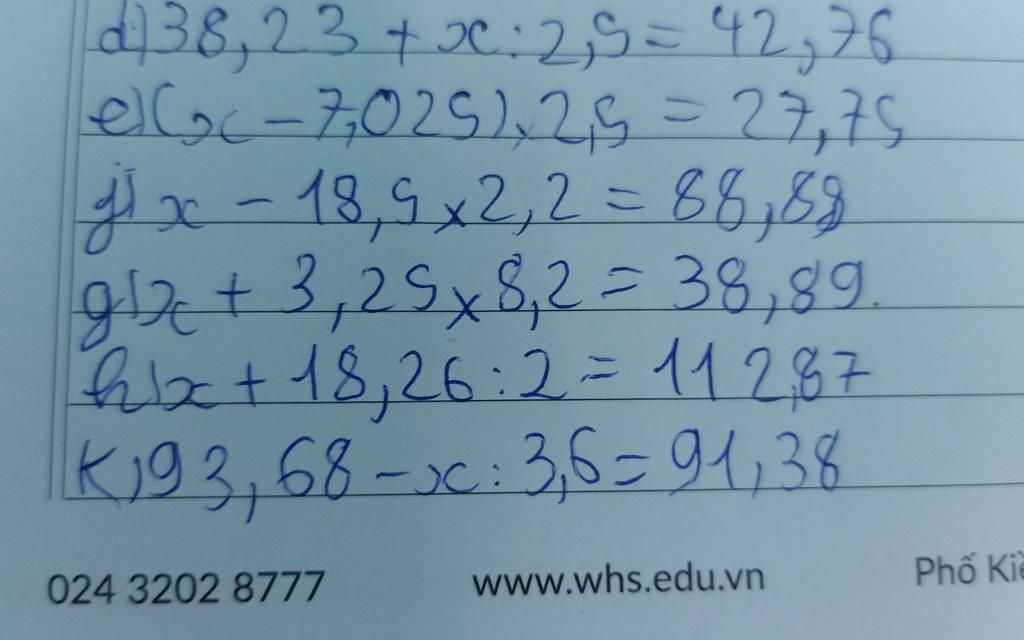 d) 38,23 + x : 2,5 = 42,76
e) (x - 7,025) x 2,5 = 27,75
f) x - 18,5 x 2,2 = 88,88
g) x + 3,25 x 8,2 = 38,89.
h) x + 18,26 : 2 = 112,87
K) 93,68 - x : 3,6 = 91,38
024 3202 8777 www.whs.edu.vn Phố